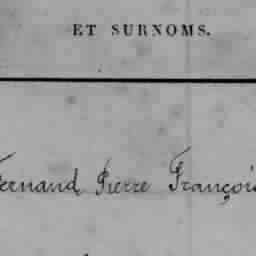 ET SURNOMS.
Fernand Pierre François